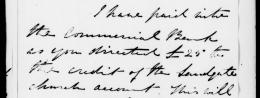 I have paid into
the Commercial Bank
as you directed £25 to
the credit of the Sandgate
church account. This will